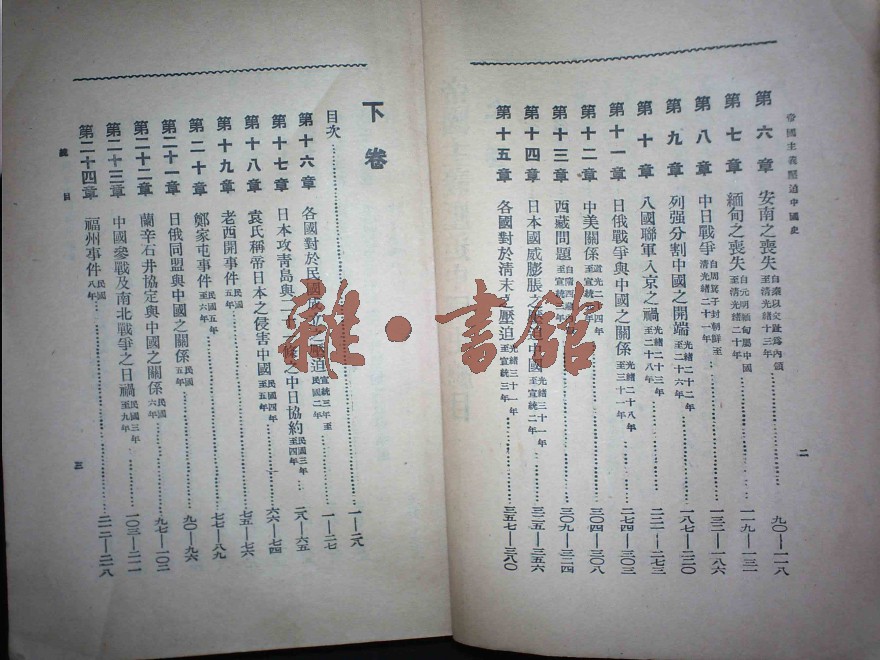 帝國主義壓迫中國史
二
第六章 安南之喪失 自秦以交趾為內領至清光緒十三年 九〇—一一八
第七章 緬甸之喪失 自元明緬甸屬中國至清光緒二十年 一一九—一三一
第八章 中日戰爭 自周篤子封朝鮮至清光緒二十一年 一三二—一八六
第九章 列强分割中國之開端 光緒二十二年至二十六年 一八七—二三〇
第十章 八國聯軍入京之禍 光緒二十三年至二十八年 二三一—二七三
第十一章 日俄戰爭與中國之關係 光緒二十八年至三十一年 二七四—三〇三
第十二章 中美關係 道光二十四年至宣統三年 三〇四—三〇八
第十三章 西藏問題 自隋 至宣統 三〇九—三二四
第十四章 日本國威膨脹之壓迫中國 光緒三十一年至宣統二年 三二五—三五六
第十五章 各國對於清末之壓迫 光緒三十一年至宣統三年 三五七—三八〇
下卷
目次 一—二八
第十六章 各國對於民國成立之壓迫 宣統三年至民國二年 一—二七
第十七章 日本攻青島與二十一條之中日協約 民國三年至四年 二八—六五
第十八章 袁氏稱帝日本之侵害中國 民國四年至五年 六六—七四
第十九章 老西開事件 民國五年 七五—七六
第二十章 鄭家屯事件 民國五年至六年 七七—八九
第二十一章 日俄同盟與中國之關係 民國五年 九〇—九六
第二十二章 蘭辛石井協定與中國之關係 民國六年 九七—一〇二
第二十三章 中國參戰及南北戰爭之日禍 民國三年至九年 一〇三—二一一
第二十四章 福州事件 民國八年 二一二—二一八
總目
三
雜·書館